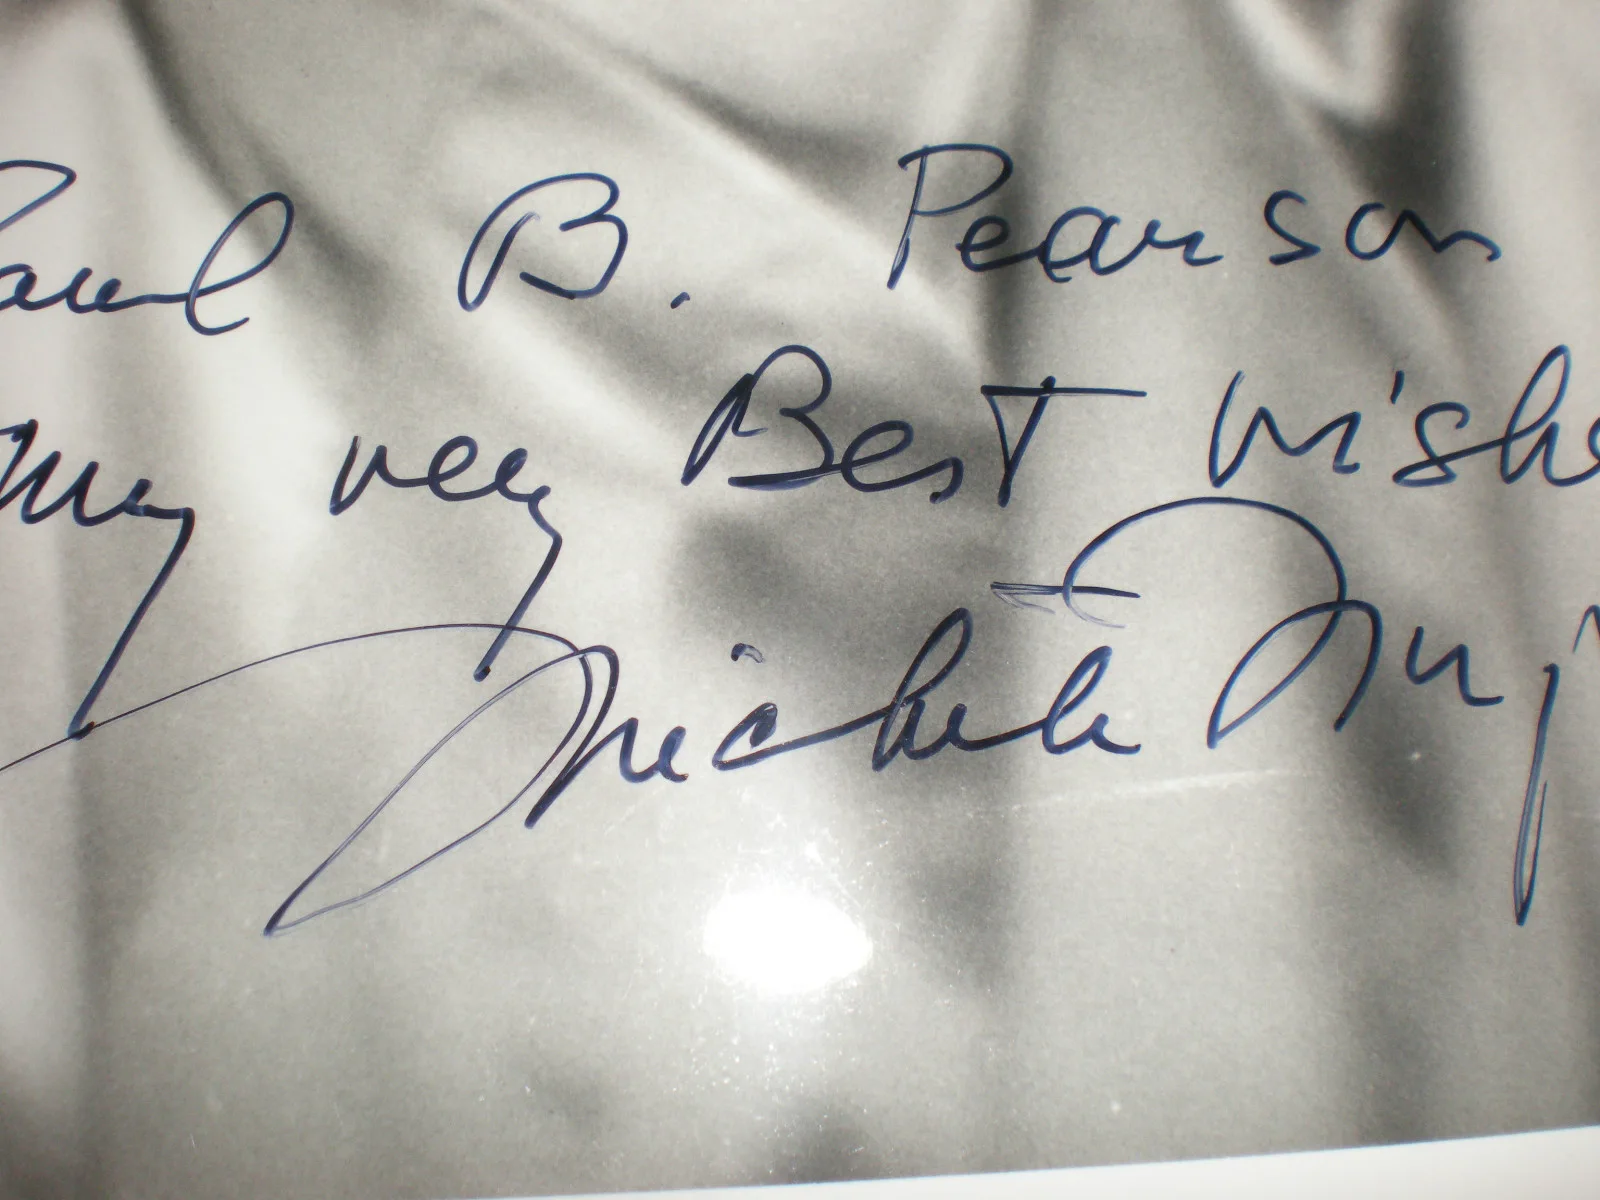 Paul B. Pearson
my very Best wishe
Michele